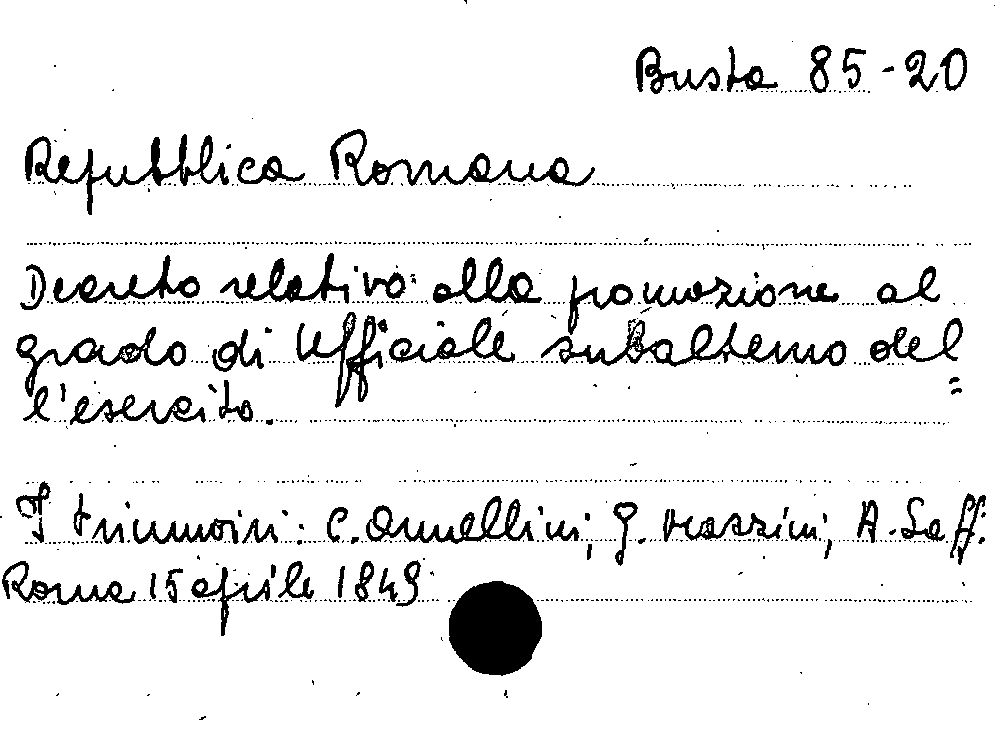 Busta 85-20
Repubblica Romana
Decreto relativo alla promozione al
grado di Ufficiale subalterno del=
l'esercito.
I triumviri: C. Armellini; G. Mazzini; A. Saffi.
Roma 15 aprile 1849